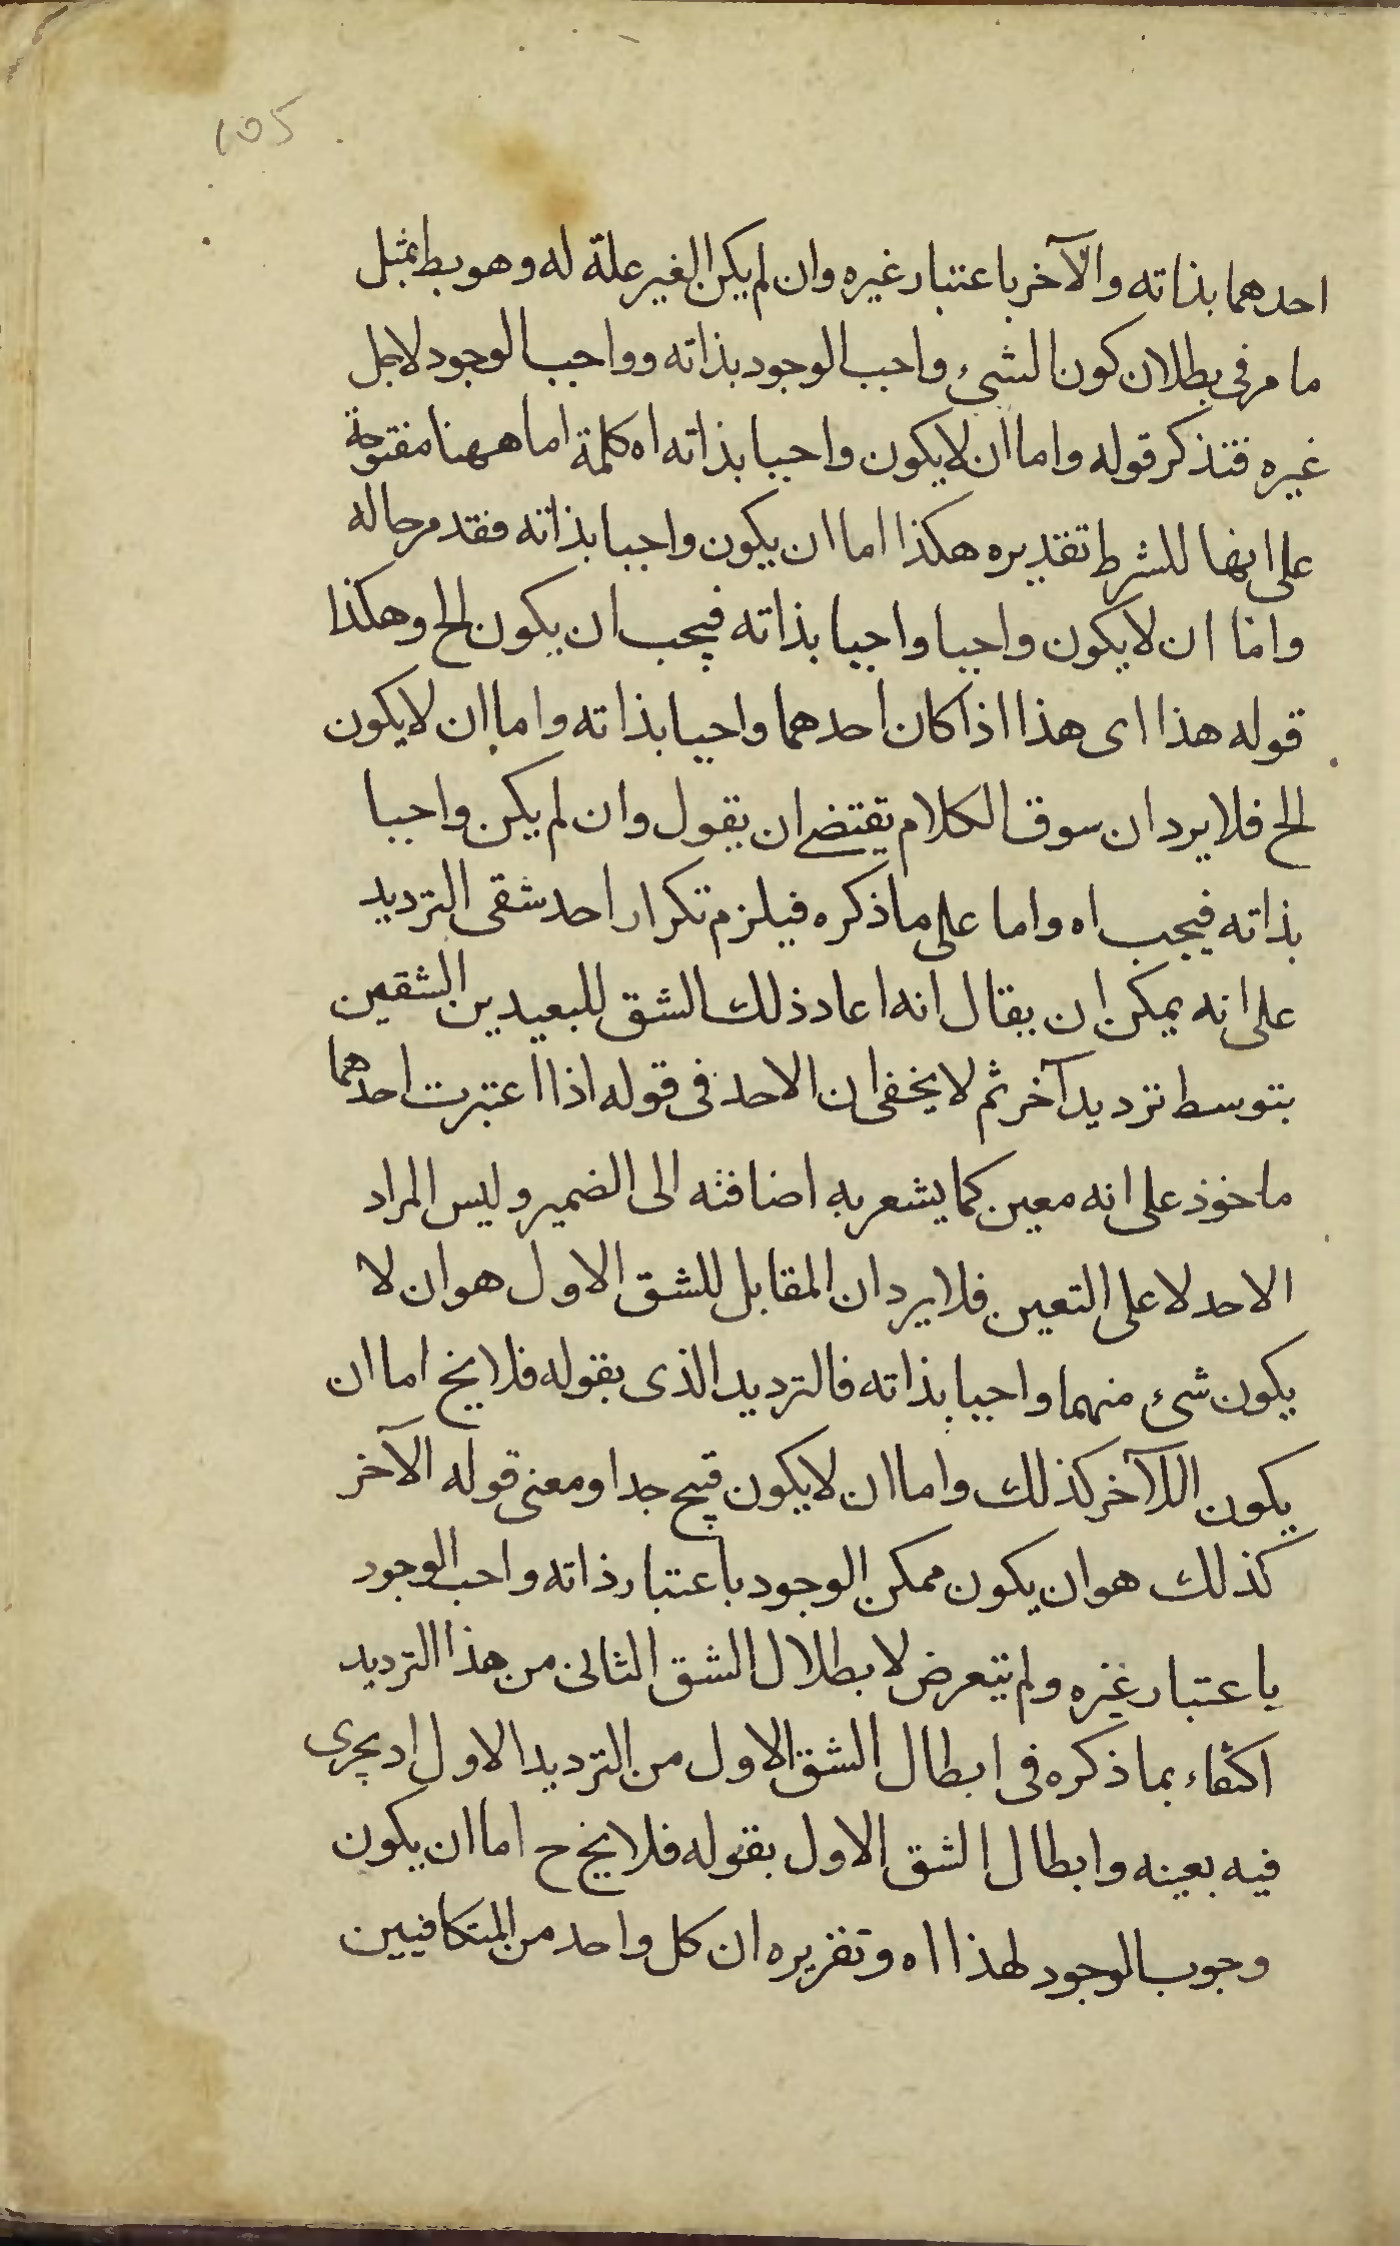 105
احدهما بذاته والآخر باعتبار غيره وان لم يكن الغير علة له وهو بط بمثل
ما مر فى بطلان كون الشىء واجب الوجود بذاته وواجب الوجود لاجل
غيره فتذكر قوله واما ان لا يكون واجبا بذاته اه كلمة اما ههنا مفتوحة
على انها للشرط تقديره هكذا اما ان يكون واجبا بذاته فقد مر حاله
واما ان لا يكون واجبا واجبا بذاته فيجب ان يكون الخ وهكذا
قوله هذا اى هذا اذا كان احدهما واجبا بذاته واما ان لا يكون
الخ فلا يرد ان سوق الكلام يقتضى ان يقول وان لم يكن واجبا
بذاته فيجب اه واما على ما ذكره فيلزم تكرار احد شقى الترديد
على انه يمكن ان يقال انه اعاد ذلك الشق للبعيد بين الشقين
بتوسط ترديد آخر ثم لا يخفى ان الاحد فى قوله اذا اعتبرت احدهما
ماخوذ على انه معين كما يشعر به اضافته الى الضمير وليس المراد
الاحد لا على التعين فلا يرد ان المقابل للشق الاول هو ان لا
يكون شىء منهما واجبا بذاته فالترديد الذى بقوله فلا يخ اما ان
يكون اللآخر كذلك واما ان لا يكون قبيح جدا ومعنى قوله الآخر
كذلك هو ان يكون ممكن الوجود باعتبار ذاته واجب الوجود
باعتبار غيره ولم يتعرض لابطلال الشق الثانى من هذا الترديد
اكتفاء بما ذكره فى ابطال الشق الاول من الترديد الاول اد يجرى
فيه بعينه وابطال الشق الاول بقوله فلا يخ ح اما ان يكون
وجوب الوجود لهذا اه وتقريره ان كل واحد من المتكافيين